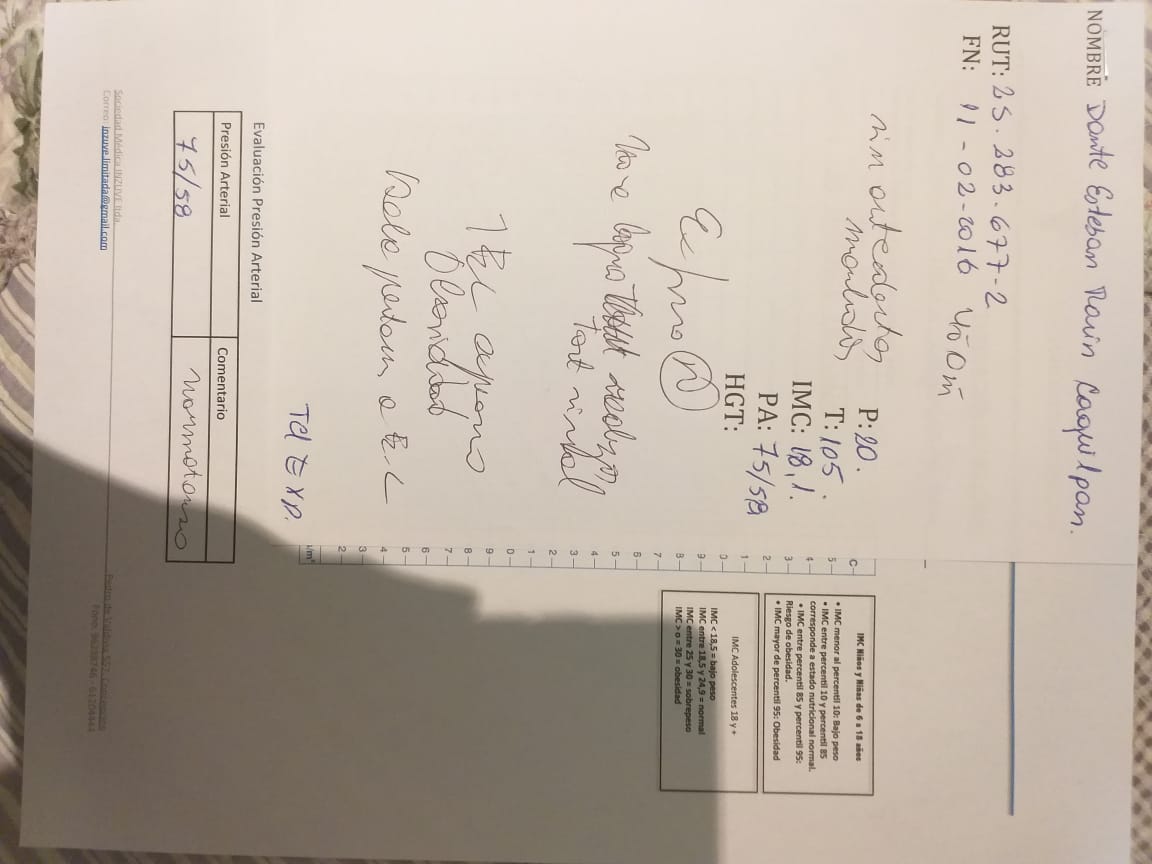 NOMBRE Dante Esteban Marin Caquilpan.
RUT: 25.283.677-2
FN: 11-02-2016 4ā 0m̄
sin antecedentes
morbidos
P: 20.
T: 105.
IMC: 18,1.
PA: 75/58
HGT:
Ex fisico (N)
test visual
1 EC
Obesidad
a EC
Td EXP.
C
5
4
3
2
1
0
9
8
7
6
5
4
3
2
1
0
9
8
7
6
5
4
3
2
/m²
IMC Niños y Niñas de 6 a 18 años
• IMC menor al percentil 10: Bajo peso
• IMC entre percentil 10 y percentil 85
corresponde a estado nutricional normal.
• IMC entre percentil 85 y percentil 95:
Riesgo de obesidad.
• IMC mayor de percentil 95: Obesidad
IMC Adolescentes 18 y +
IMC < 18,5 = bajo peso
IMC entre 18,5 y 24,9 = normal
IMC entre 25 y 30 = sobrepeso
IMC > o = 30 = obesidad
Evaluación Presión Arterial
Presión Arterial Comentario
75/58 normotenso
Sociedad Médica INZUVE ltda.
Correo: inzuve.limitada@gmail.com
Pedro de Valdivia 557, Concepción
Fono: 96238746 - 61204444